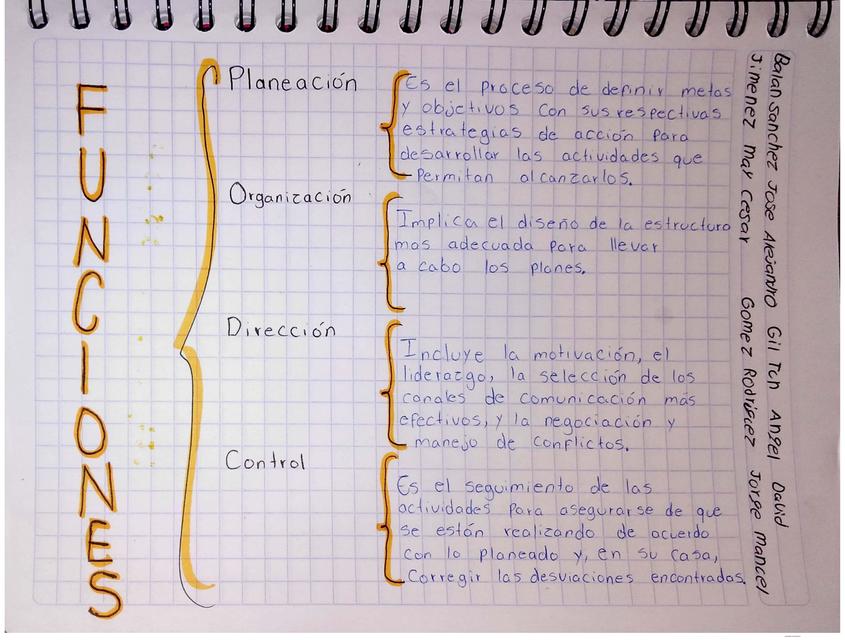 FUNCIONES
Planeación
Es el proceso de definir metas
y objetivos con sus respectivas
estrategias de acción para
desarrollar las actividades que
permitan alcanzarlos.
Organización
Implica el diseño de la estructura
mas adecuada para llevar
a cabo los planes.
Dirección
Incluye la motivación, el
liderazgo, la selección de los
canales de comunicación más
efectivos, y la negociación y
manejo de conflictos.
Control
Es el seguimiento de las
actividades para asegurarse de que
se están realizando de acuerdo
con lo planeado y, en su casa,
Corregir las desviaciones encontradas.
Balan Sanchez Jose Alejandro Gil Tch Angel David
Jimenez May Cesar Gomez Rodriguez Jorge Mancel